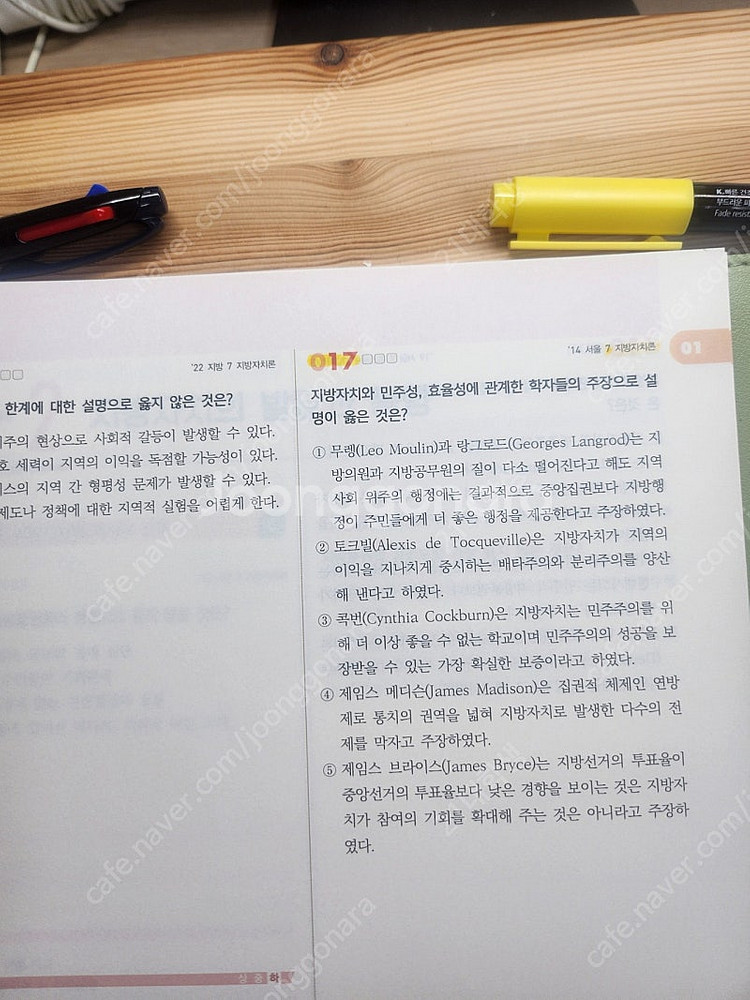 K.빠른 건
부드러운
Fade resist
'22 지방 7 지방자치론
한계에 대한 설명으로 옳지 않은 것은?
현상으로 사회적 갈등이 발생할 수 있다.
세력이 지역의 이익을 독점할 가능성이 있다.
지역 간 형평성 문제가 발생할 수 있다.
정책에 대한 지역적 실험을 어렵게 한다.
017
'14 서울 7 지방자치론
01
지방자치와 민주성, 효율성에 관계한 학자들의 주장으로 설
명이 옳은 것은?
① 무렝(Leo Moulin)과 랑그로드(Georges Langrod)는 지
방의원과 지방공무원의 질이 다소 떨어진다고 해도 지역
사회 위주의 행정에는 결과적으로 중앙집권보다 지방행
정이 주민들에게 더 좋은 행정을 제공한다고 주장하였다.
② 토크빌(Alexis de Tocqueville)은 지방자치가 지역의
이익을 지나치게 중시하는 배타주의와 분리주의를 양산
해 낸다고 하였다.
③ 콕번(Cynthia Cockburn)은 지방자치는 민주주의를 위
해 더 이상 좋을 수 없는 학교이며 민주주의의 성공을 보
장받을 수 있는 가장 확실한 보증이라고 하였다.
④ 제임스 메디슨(James Madison)은 집권적 체제인 연방
제로 통치의 권역을 넓혀 지방자치로 발생한 다수의 전
제를 막자고 주장하였다.
⑤ 제임스 브라이스(James Bryce)는 지방선거의 투표율이
중앙선거의 투표율보다 낮은 경향을 보이는 것은 지방자
치가 참여의 기회를 확대해 주는 것은 아니라고 주장하
였다.
상 중 하
joonggonara
cafe.naver.com/joonggonara